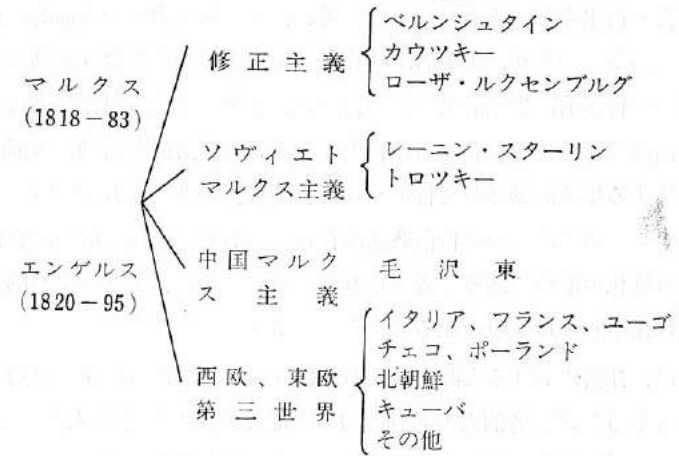 マルクス
(1818－83)
エンゲルス
(1820－95)
修正主義
ベルンシュタイン
カウツキー
ローザ・ルクセンブルグ
ソヴィエト
マルクス主義
レーニン・スターリン
トロツキー
中国マルク
ス主義
毛沢東
西欧、東欧
第三世界
イタリア、フランス、ユーゴ
チェコ、ポーランド
北朝鮮
キューバ
その他